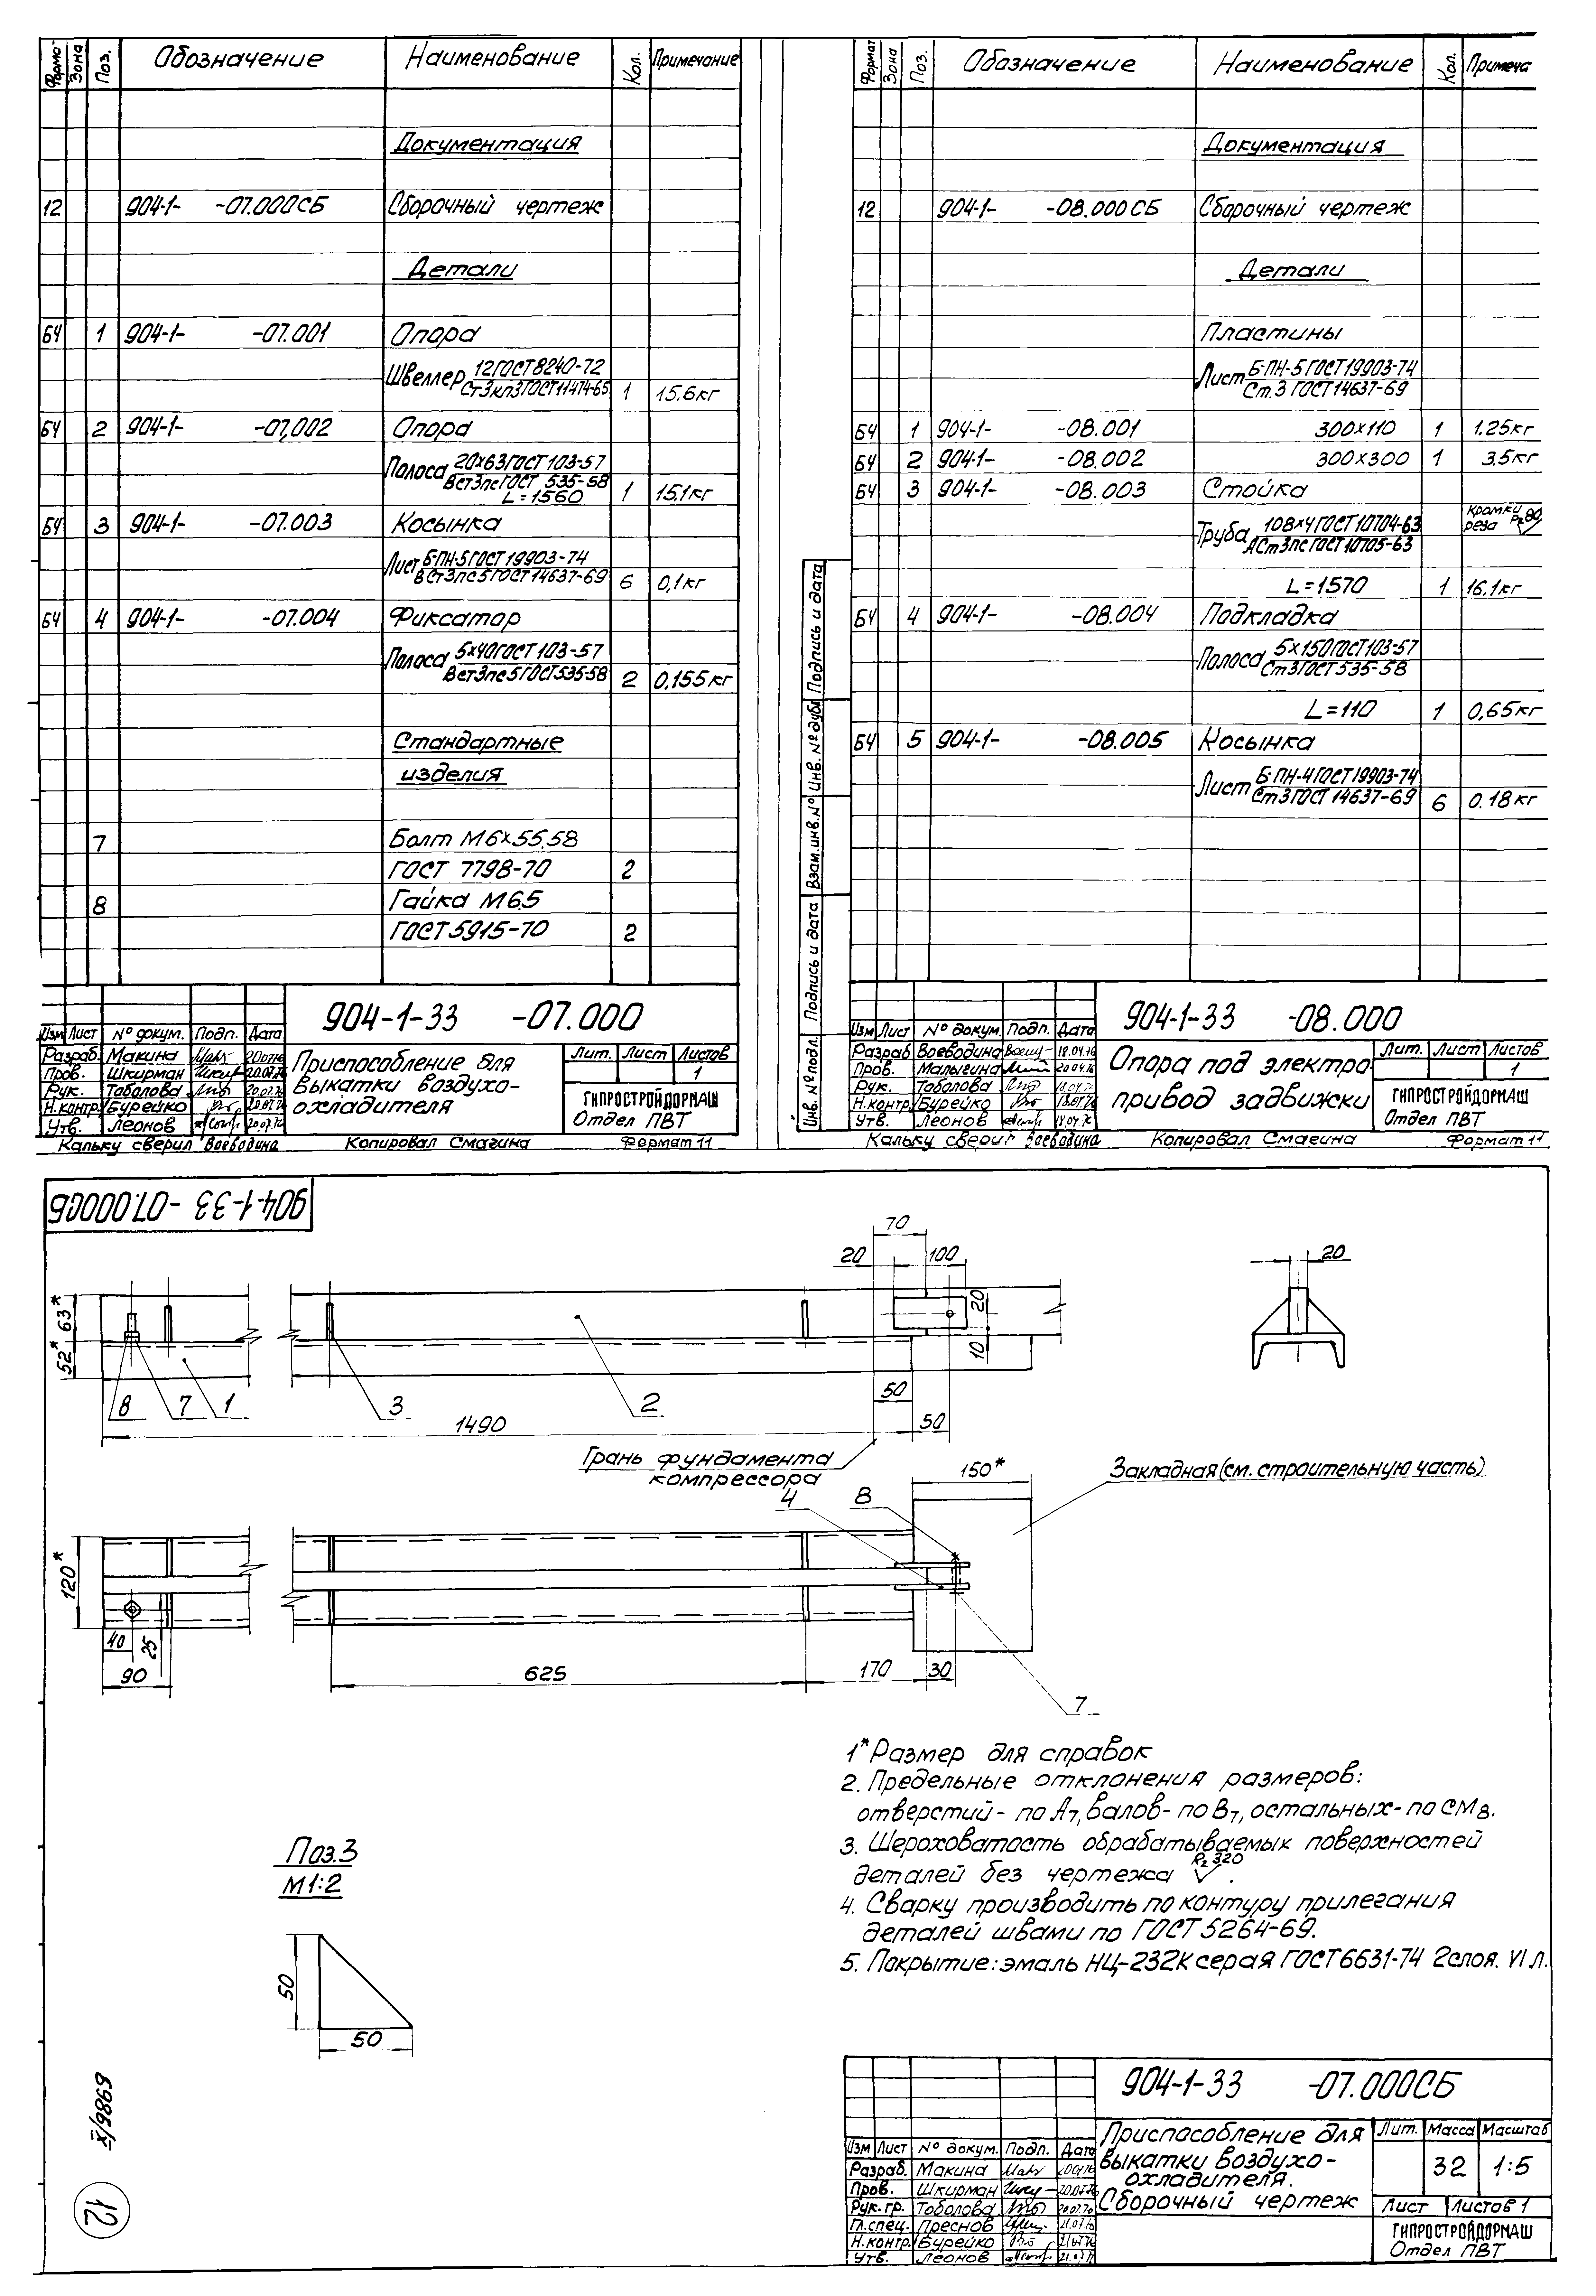 Формат Зона Поз. Обозначение Наименование Кол. Примечание
Документация
12 904-1- -07.000СБ Сборочный чертеж
Детали
БЧ 1 904-1- -07.001 Опора
Швеллер 12ГОСТ8240-72
Ст3кп3ГОСТ11474-65 1 15,6кг
БЧ 2 904-1- -07,002 Опора
Полоса 20х63ГОСТ103-57
Вст3псГОСТ 535-58
L=1560 1 15,1кг
БЧ 3 904-1- -07.003 Косынка
Лист Б-ПН-5ГОСТ19903-74
ВСт3пс5ГОСТ14637-69 6 0,1кг
БЧ 4 904-1- -07.004 Фиксатор
Полоса 5х40ГОСТ103-57
Вст3пс5ГОСТ535-58 2 0,155кг
Стандартные
изделия
7 Болт М6х55.58
ГОСТ 7798-70 2
8 Гайка М6.5
ГОСТ5915-70 2
904-1-33 -07.000
Изм Лист № докум. Подп. Дата
Разраб. Макина 20.07.76
Пров. Шкирман 20.07.76
Рук. Таболова 20.07.76
Н.контр. Бурейко 20.07.76
Утв. Леонов 20.07.76
Приспособление для
выкатки воздухо-
охладителя
Лит. Лист Листов
1
ГИПРОСТРОЙДОРМАШ
Отдел ПВТ
Кальку сверил Воеводина Копировал Смагина Формат 11
Формат Зона Поз. Обозначение Наименование Кол. Примеча
Документация
12 904-1- -08.000СБ Сборочный чертеж
Детали
Пластины
Лист Б-ПН-5ГОСТ19903-74
Ст.3 ГОСТ14637-69
БЧ 1 904-1- -08.001 300х110 1 1.25кг
БЧ 2 904-1- -08.002 300х300 1 3.5кг
БЧ 3 904-1- -08.003 Стойка
Труба 108х4ГОСТ10704-63
АСт3псГОСТ10705-63
кромки
реза Rz80
L=1570 1 16.1кг
БЧ 4 904-1- -08.004 Подкладка
Полоса 5х150ГОСТ103-57
Ст3ГОСТ535-58
L=110 1 0,65кг
БЧ 5 904-1- -08.005 Косынка
Лист Б-ПН-4ГОСТ19903-74
Ст3ГОСТ14637-69 6 0.18кг
Инв. № подл. Подпись и дата Взам.инв.№ Инв. № дубл Подпись и дата
904-1-33 -08.000
Изм Лист № докум. Подп. Дата
Разраб Воеводина 18.04.76
Пров. Малыгина 20.04.76
Рук. Таболова
Н.контр. Бурейко
Утв. Леонов
Опора под электро-
привод задвижки
Лит. Лист Листов
1
ГИПРОСТРОЙДОРМАШ
Отдел ПВТ
Кальку сверил Воеводина Копировал Смагина Формат 11
904-1-33 -07.000СБ
70
20 100
20
63*
52*
20
10
8 7 1 3 2
50
50
1490
Грань фундамента
компрессора
150*
Закладная(см. строительную часть)
4 8
120*
40
25
90
625
170 30
7
1* Размер для справок
2. Предельные отклонения размеров:
отверстий- по А7, валов- по В7, остальных- по СМ8.
3. Шероховатость обрабатываемых поверхностей
деталей без чертежа Rz320.
4. Сварку производить по контуру прилегания
деталей швами по ГОСТ 5264-69.
5. Покрытие: эмаль НЦ-232К серая ГОСТ6631-74 2слоя. VI Л.
Поз.3
М1:2
50
50
X/9869
12
904-1-33 -07.000СБ
Изм Лист № докум. Подп. Дата
Разраб. Макина
Пров. Шкирман 20.07.76
Рук.гр. Тоболова
Гл.спец. Преснов
Н.контр. Бурейко
Утв. Леонов
Приспособление для
выкатки воздухо-
охладителя.
Сборочный чертеж
Лит. Масса Масштаб
32 1:5
Лист Листов 1
ГИПРОСТРОЙДОРМАШ
Отдел ПВТ